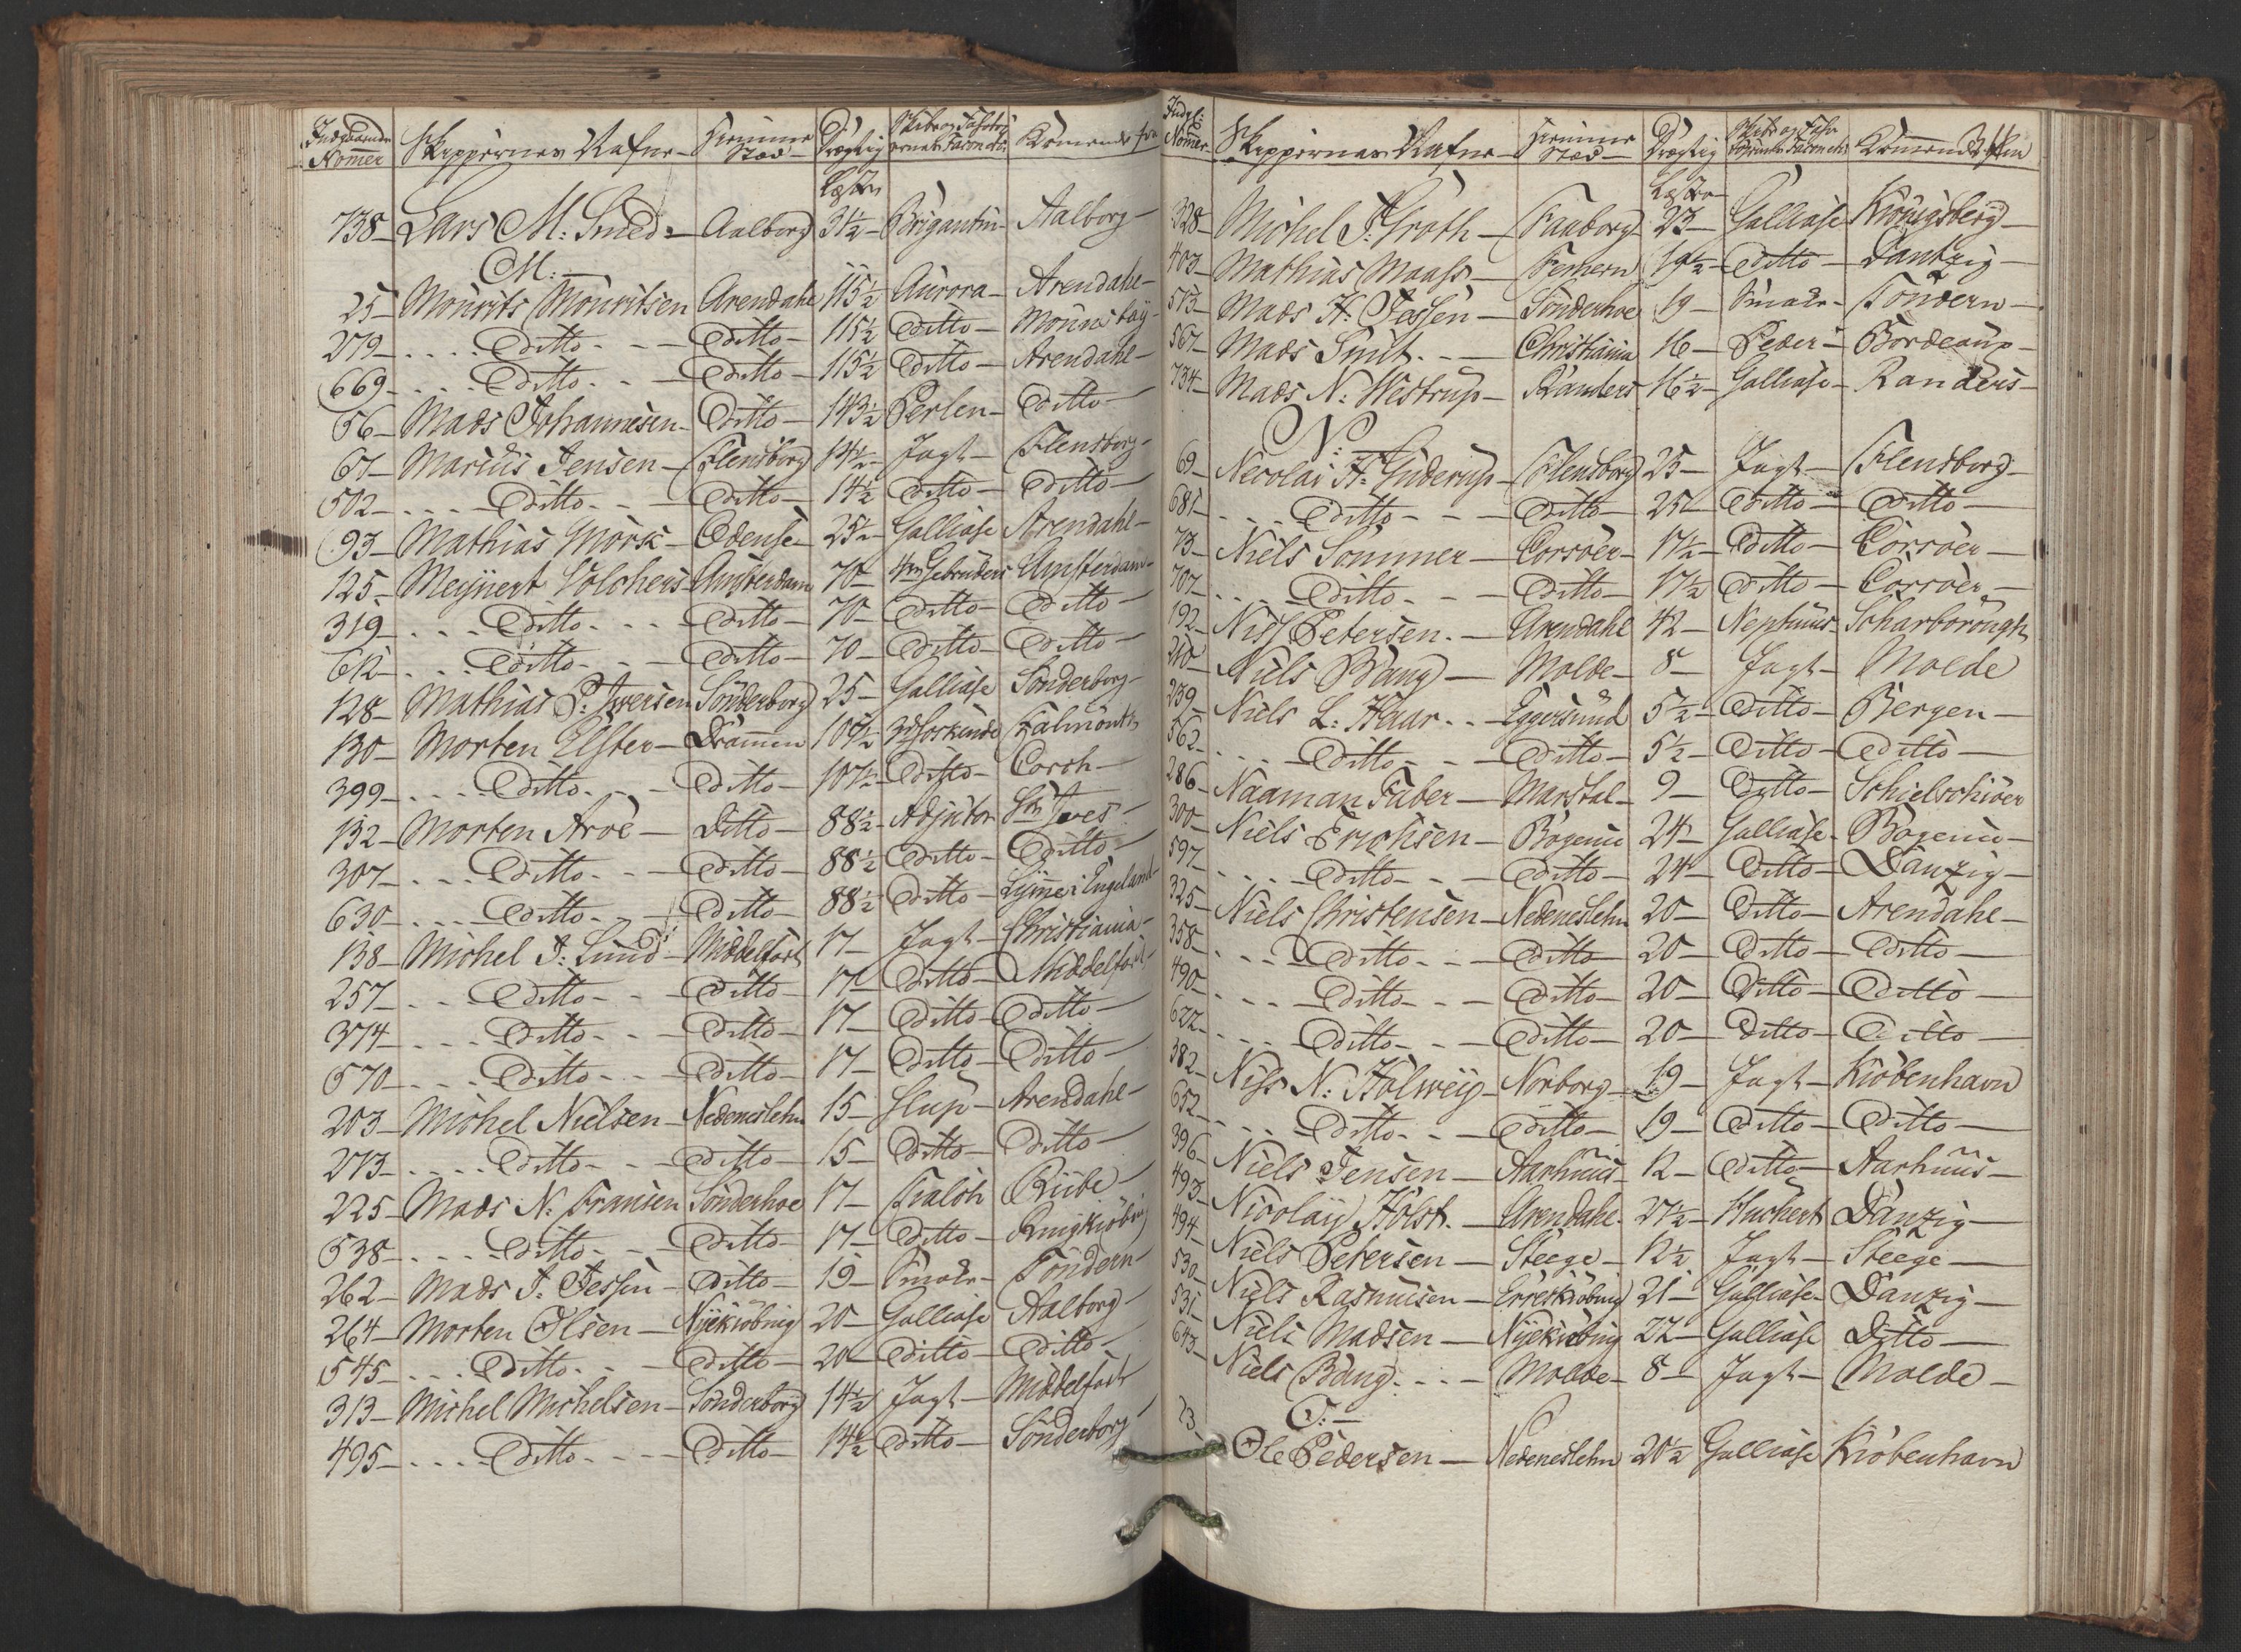 Indgaaende Nomer Skippernes Nafne Hiemme Stæd Drægtig Kommende fra
Læster
738 Lars M. Smed Aalborg 31½ Brigantin Aalborg
M:
25 Mourits Mouritsen Arendahl 115½ Aurora Arendahl
279 Ditto Ditto 115½ Ditto
669 Ditto Ditto 115½ Ditto Arendahl
56 Mads Johannesen Ditto 143½ Perlen Ditto
67 Marcus Jensen Flensborg 14½ Jagt Flensborg
502 Ditto Ditto 14½ Ditto Ditto
93 Mathias Mörk Odense 25½ Galliase Arendahl
125 Meÿnert Volchers Amsterdam 70 Gebruders Amsterdam
319 Ditto Ditto 70 Ditto Ditto
612 Ditto Ditto 70 Ditto Ditto
128 Mathias P. Iwersen Sönderborg 25 Galliase Sönderborg
130 Morten Elster Drammen 107½ Falmouth
399 Ditto Ditto 107½ Ditto Corch
132 Morten Aroe Ditto 88½ Adjutor St Ives
307 Ditto Ditto 88½ Ditto Ditto
630 Ditto Ditto 88½ Ditto Lyme i Engeland
138 Michel J: Lund Middelfart 17 Jagt Christiania
257 Ditto Ditto 17 Ditto Middelfart
374 Ditto Ditto 17 Ditto Ditto
570 Ditto Ditto 17 Ditto Ditto
203 Michel Nielsen Nedeneslehn 15 Slup Arendahl
273 Ditto Ditto 15 Ditto Ditto
225 Mads N. Fransen Sönderhoe 17 Ribe
538 Ditto Ditto 17 Ditto Ringkiöbing
262 Mads J. Jessen Ditto 19 Smake Töndern
264 Morten Olsen Nÿekiöbing 20 Galliase Aalborg
545 Ditto Ditto 20 Ditto Ditto
313 Michel Michelsen Sönderborg 14½ Jagt Middelfart
495 Ditto Ditto 14½ Ditto Sönderborg
Indg: Nomer Skippernes Nafne Hiemme Stæd Drægtig Kommende fra
Læster
328 Michel J. Groth Faaborg 23 Galliase Königsberg
403 Mathias Maass Femern 19½ Ditto Dantzig
513 Mads H. Jessen Sönderhoe 19 Smake Töndern
567 Mads Smit Christiania 16 Peder Bordeaux
734 Mads N. Westrup Randers 16½ Galliase Randers
N:
69 Necolai H. Guderup Flensborg 25 Jagt Flensborg
681 Ditto Ditto 25 Ditto Ditto
73 Niels Sommer Corsöer 17½ Ditto Corsöer
707 Ditto Ditto 17½ Ditto Corsöer
192 Niss Petersen Arendahl 42 Neptunus Scharborough
210 Niels Bang Molde 8 Jagt Molde
239 Niels L. Haar Eggersund 5½ Ditto Bergen
562 Ditto Ditto 5½ Ditto Ditto
286 Naaman Faber Marstal 9 Ditto Schielschiöer
300 Niels Erichsen Bogense 24 Galliase Bogense
597 Ditto Ditto 24 Ditto Danzig
325 Niels Christensen Nedeneslehn 20 Ditto Arendahl
358 Ditto Ditto 20 Ditto Ditto
490 Ditto Ditto 20 Ditto Ditto
622 Ditto Ditto 20 Ditto Ditto
382 Niss N. Holweÿ Norborg 19 Jagt Kiöbenhavn
652 Ditto Ditto 19 Ditto Ditto
396 Niels Jensen Aarhuus 12 Ditto Aarhuus
493 Nicolaÿ Holst Arendahl 27½ Huckert Danzig
494 Niels Petersen Steege 12½ Jagt Steege
530 Niels Rasmusen Erreskiöbing 21 Galliase Danzig
531 Niels Madsen Nÿekiöbing 22 Galliase Ditto
643 Niels Bang Molde 8 Jagt Molde
O:
23 Ole Pedersen Nedeneslehn 20½ Galliase Kiöbenhavn